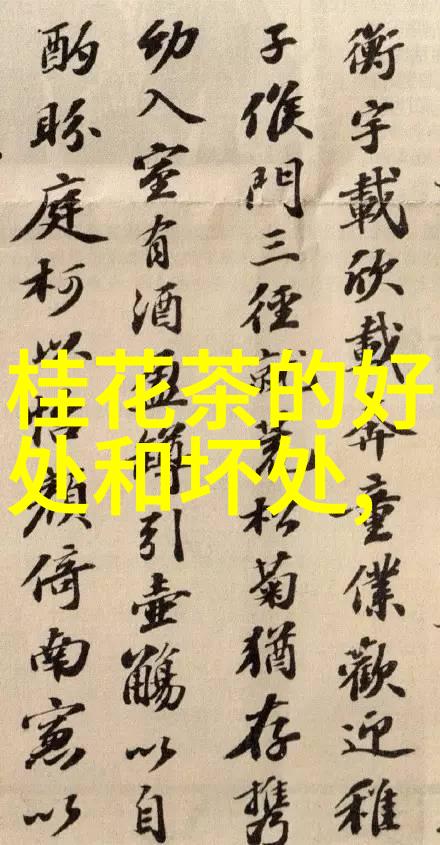 桂花茶的好
处和坏处,
衡宇載欣載奔童僕歡迎稚
子候門三徑就荒松菊猶存攜
幼入室有酒盈罇引壺觴以自
酌眄庭柯以怡顏倚南窻以